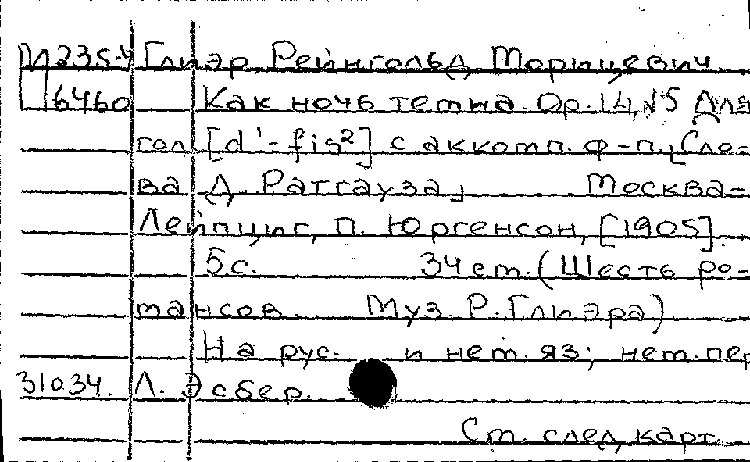 М235-4 Глиэр Рейнгольд Морицевич
6460 Как ночь темна. Op. 14, №5 Для
гол. [d'-fis²] с аккомп. ф-п. [Сло-
ва Д. Ратгауза] Москва-
Лейпциг, П. Юргенсон, [1905].
5с. 34см. (Шесть ро-
мансов. Муз Р. Глиэра)
На рус. и нем. яз; нем. пер
31034. Л. Эсбер.
См. след. карт.